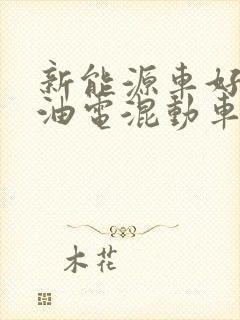 新能源车好
油電混動車
木花